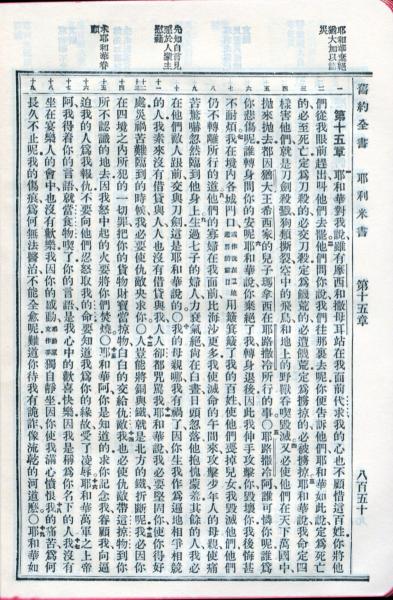 耶和華棄絕猶大加以諸災
先知自言見惡於人蒙主慰藉
求耶和華眷顧
舊約全書 耶利米書 第十五章 八百五十
第十五章 耶和華對我說雖有摩西和撒母耳站在我面前代求我的心也不顧惜這百姓你將他
們從我眼前趕出叫他們去罷他們問你說我們往那裏去呢你便告訴他們耶和華如此說定爲死亡
的必至死亡定爲刀殺的必交刀殺定爲饑荒的必遭饑荒定爲擄掠的必被擄掠耶和華說我命定四
樣害他們就是刀劍殺獵狗類撕裂空中的飛鳥和地上的野獸吞喫毀滅又必使他們在天下萬國中
拋來拋去都因猶大王希西家的兒子瑪拿西在耶路撒冷所行的事〇耶路撒冷阿誰可憐你呢誰爲
你悲傷呢誰轉身問你的安呢耶和華說你棄絕了我轉身退後因此我伸手攻擊你毀壞你我後悔甚
不耐煩我在境內各城門口用簸箕簸了我的百姓使他們喪掉兒女我毀滅他們他們
仍不轉離所行的道他們的寡婦在我面前比海沙更多我使滅命的午間來攻擊少年人的母親使痛
苦驚嚇忽然臨到他身上生過七子的婦人力衰氣絕尚在白晝日頭忽落他抱愧蒙羞其餘的人我必
在他們敵人跟前交與刀劍這是耶和華說的〇我的母親哪我有禍了因你生我作爲遍地相爭相競
的人我素來沒有借貸與人人也沒有借貸與我人人卻都咒罵我耶和華說我必要堅固你使你得好
處災禍苦難臨到的時候我必要使仇敵央求你人豈能將銅與鐵就是北方的鐵折斷呢我必因你
在四境之內所犯的一切罪把你的貨物財寶當掠物白白的交給仇敵我也必使仇敵帶這掠物到你
所不認識的地去因我怒中起的火要將你們焚燒〇耶和華阿你是知道的求你記念我眷顧我向逼
迫我的人爲我報仇不要向他們忍怒取我的命要知道我爲你的緣故受了凌辱耶和華萬軍之上帝
阿我得着你的言語就當食物喫了你的言語是我心中的歡喜快樂因我是稱爲你名下的人我沒有
坐在宴樂人的會中也沒有歡樂我因你的感動獨自靜坐因你使我滿心憤恨我的痛苦爲何
長久不止呢我的傷痕爲何無法醫治不能全愈呢難道你待我有詭詐像流乾的河道麼〇耶和華如